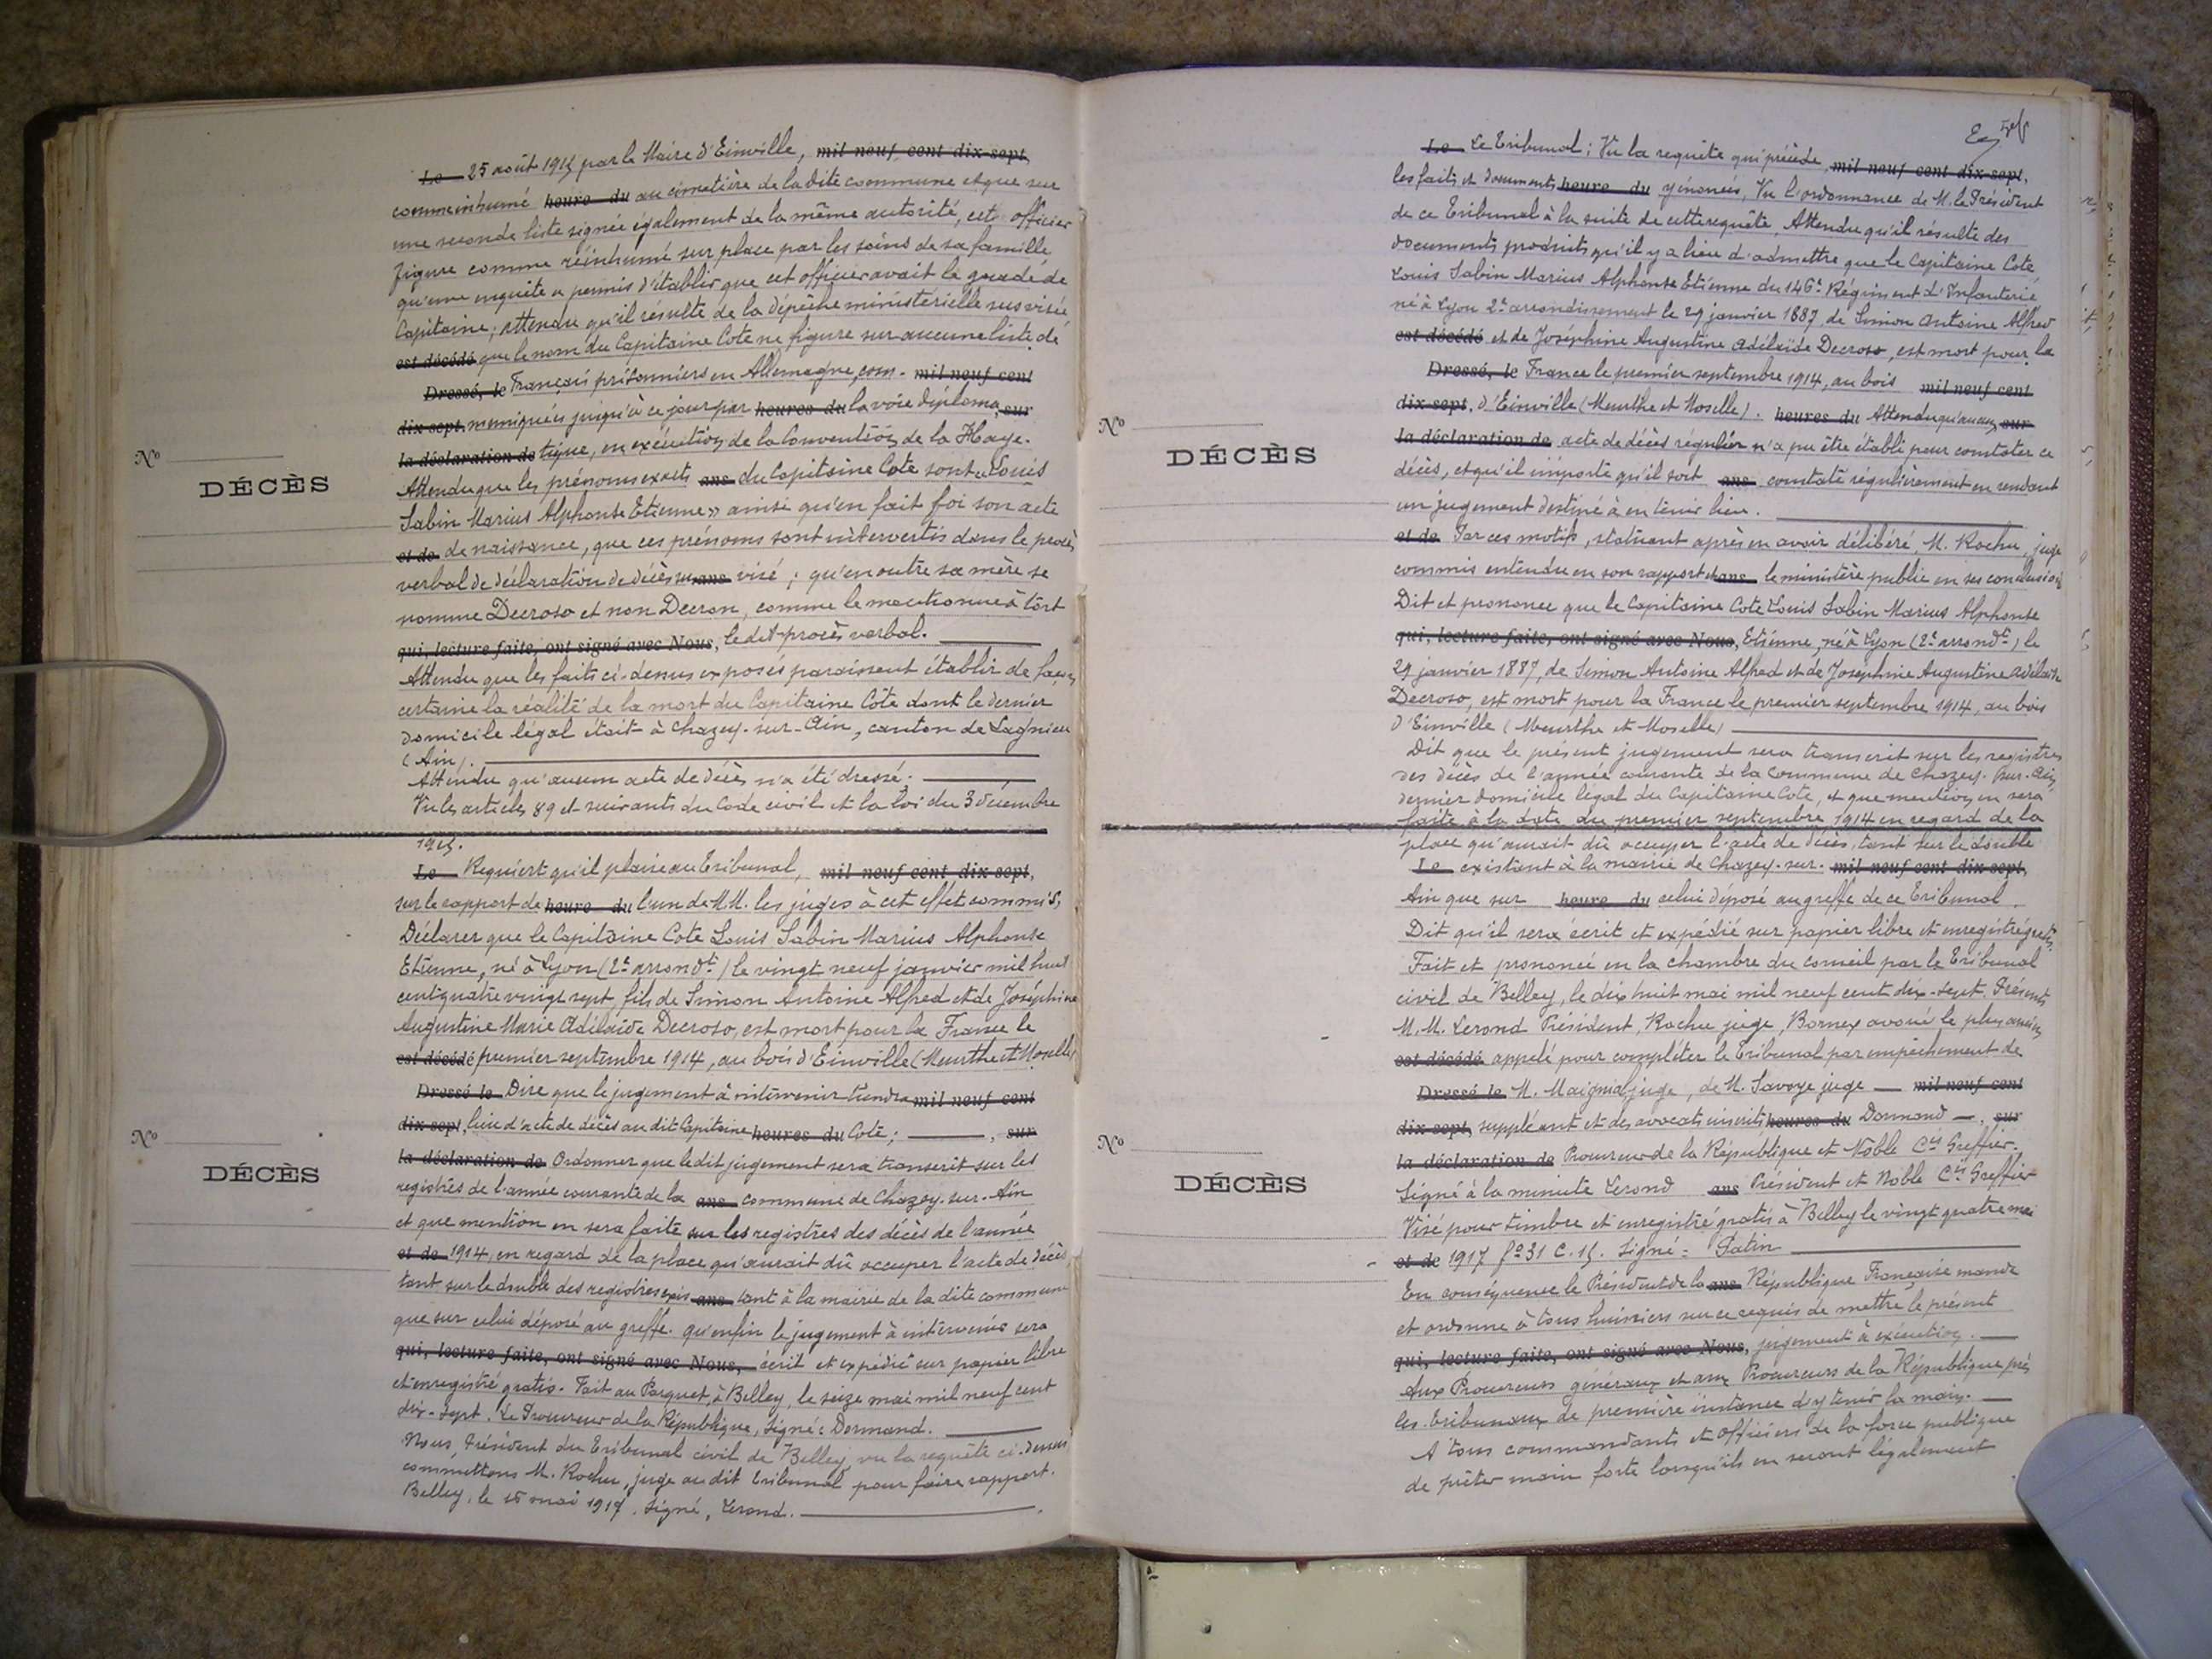 Le 25 août 1915 par le Maire d'Einville, mil neuf cent dix-sept,
comme inhumé heure du au cimetière de la dite commune et que sur
une seconde liste signée également de la même autorité, cet officier
figure comme réinhumé sur place par les soins de sa famille
qu'une enquête a permis d'établir que cet officier avait le grade de
Capitaine; attendu qu'il résulte de la dépêche ministérielle susvisée
est décédé que le nom du Capitaine Cote ne figure sur aucune liste de
Dressé, le Français prisonniers en Allemagne, com- mil neuf cent
dix-sept, muniquées jusqu'à ce jour par heures du la voie diploma, sur
la déclaration de tique, en exécution de la Convention de la Haye.
Nº
DÉCÈS
Attendu que les prénoms exacts ans du Capitaine Cote sont « Louis
Sabin Marius Alphonse Etienne » ainsi qu'en fait foi son acte
et de de naissance, que ces prénoms sont intervertis dans le procès
verbal de déclaration de décès sus ans visé; qu'en outre sa mère se
nomme Decroso et non Decron, comme le mentionne à tort
qui, lecture faite, ont signé avec Nous, le dit procès verbal.
Attendu que les faits ci-dessus exposés paraissent établir de façon
certaine la réalité de la mort du Capitaine Côte dont le dernier
domicile légal était à Chazey-sur-Ain, canton de Lagnieu
(Ain).
Attendu qu'aucun acte de décès n'a été dressé.
Vu les articles 89 et suivants du Code civil et la loi du 3 décembre
1915.
Le Requiert qu'il plaise au Tribunal, mil neuf cent dix-sept,
sur le rapport de heure du l'un de M.M. les juges à cet effet commis,
Déclarer que le Capitaine Cote Louis Sabin Marius Alphonse
Etienne, né à Lyon (2e arrondt) le vingt neuf janvier mil huit
cent quatre vingt sept, fils de Simon Antoine Alfred et de Joséphine
Augustine Marie Adélaïde Decroso, est mort pour la France le
est décédé premier septembre 1914, au bois d'Einville (Meurthe et Moselle)
Dressé le Dire que le jugement à intervenir tiendra mil neuf cent
dix-sept, lieu d'acte de décès au dit Capitaine heures du Cote; , sur
la déclaration de Ordonner que le dit jugement sera transcrit sur les
Nº
DÉCÈS
registres de l'année courante de la ans commune de Chazey-sur-Ain
et que mention en sera faite sur les registres des décès de l'année
et de 1914, en regard de la place qu'aurait dû occuper l'acte de décès,
tant sur le double des registres exis ans tant à la mairie de la dite commune
que sur celui déposé au greffe. qu'enfin le jugement à intervenir sera
qui, lecture faite, ont signé avec Nous, écrit et expédié sur papier libre
et enregistré gratis. Fait au Parquet, à Belley, le seize mai mil neuf cent
dix-sept. Le Procureur de la République, Signé: Dormand.
Nous, Président du Tribunal civil de Belley, vu la requête ci-dessus
commettons M. Rochu, juge au dit Tribunal pour faire rapport.
Belley, le 16 mai 1917. Signé, Lerond.
Le Le Tribunal: Vu la requête qui précède, mil neuf cent dix-sept,
les faits et documents heure du y énoncés, Vu l'ordonnance de M. le Président
de ce Tribunal à la suite de cette requête, Attendu qu'il résulte des
documents produits qu'il y a lieu d'admettre que le Capitaine Cote
Louis Sabin Marius Alphonse Etienne du 146e Régiment d'Infanterie
né à Lyon 2e arrondissement le 29 janvier 1887, de Simon Antoine Alfred
est décédé et de Joséphine Augustine Adélaïde Decroso, est mort pour la
Dressé, le France le premier septembre 1914, au bois mil neuf cent
dix-sept, d'Einville (Meurthe et Moselle). heures du Attendu qu'aucun, sur
la déclaration de acte de décès régulier n'a pu être établi pour constater ce
Nº
DÉCÈS
décès, et qu'il importe qu'il soit ans constaté régulièrement en rendant
un jugement destiné à en tenir lieu.
et de Par ces motifs, statuant après en avoir délibéré, M. Rochu, juge
commis entendu en son rapport et ans le ministère public en ses conclusions
Dit et prononce que le Capitaine Cote Louis Sabin Marius Alphonse
qui, lecture faite, ont signé avec Nous, Etienne, né à Lyon (2e arrondt) le
29 janvier 1887, de Simon Antoine Alfred et de Joséphine Augustine Adélaïde
Decroso, est mort pour la France le premier septembre 1914, au bois
d'Einville (Meurthe et Moselle)
Dit que le présent jugement sera transcrit sur les registres
des décès de l'année courante de la Commune de Chazey-sur-Ain,
dernier domicile légal du Capitaine Cote, et que mention en sera
faite à la date du premier septembre 1914 en regard de la
place qu'aurait dû occuper l'acte de décès, tant sur le double
Le existant à la mairie de Chazey-sur- mil neuf cent dix-sept,
Ain que sur heure du celui déposé au greffe de ce Tribunal.
Dit qu'il sera écrit et expédié sur papier libre et enregistré gratis.
Fait et prononcé en la chambre du conseil par le Tribunal
civil de Belley, le dix huit mai mil neuf cent dix-sept. Présents
M.M. Lerond Président, Rochu juge, Bornex avoué le plus ancien,
est décédé appelé pour compléter le Tribunal par empêchement de
Dressé le M. Maignial juge, de M. Savoye juge mil neuf cent
dix-sept, suppléant et des avocats inscrits heures du Dormand , sur
la déclaration de Procureur de la République et Noble Cis Greffier.
Nº
DÉCÈS
Signé à la minute Lerond ans Président et Noble Cis Greffier
Visé pour timbre et enregistré gratis à Belley le vingt quatre mai
et de 1917 fº 31 C. 15. Signé: Patin
En conséquence le Président de la ans République Française mande
et ordonne à tous huissiers sur ce requis de mettre le présent
qui, lecture faite, ont signé avec Nous, jugement à exécution.
Aux Procureurs généraux et aux Procureurs de la République près
les Tribunaux de première instance d'y tenir la main.
A tous commandants et officiers de la force publique
de prêter main forte lorsqu'ils en seront légalement